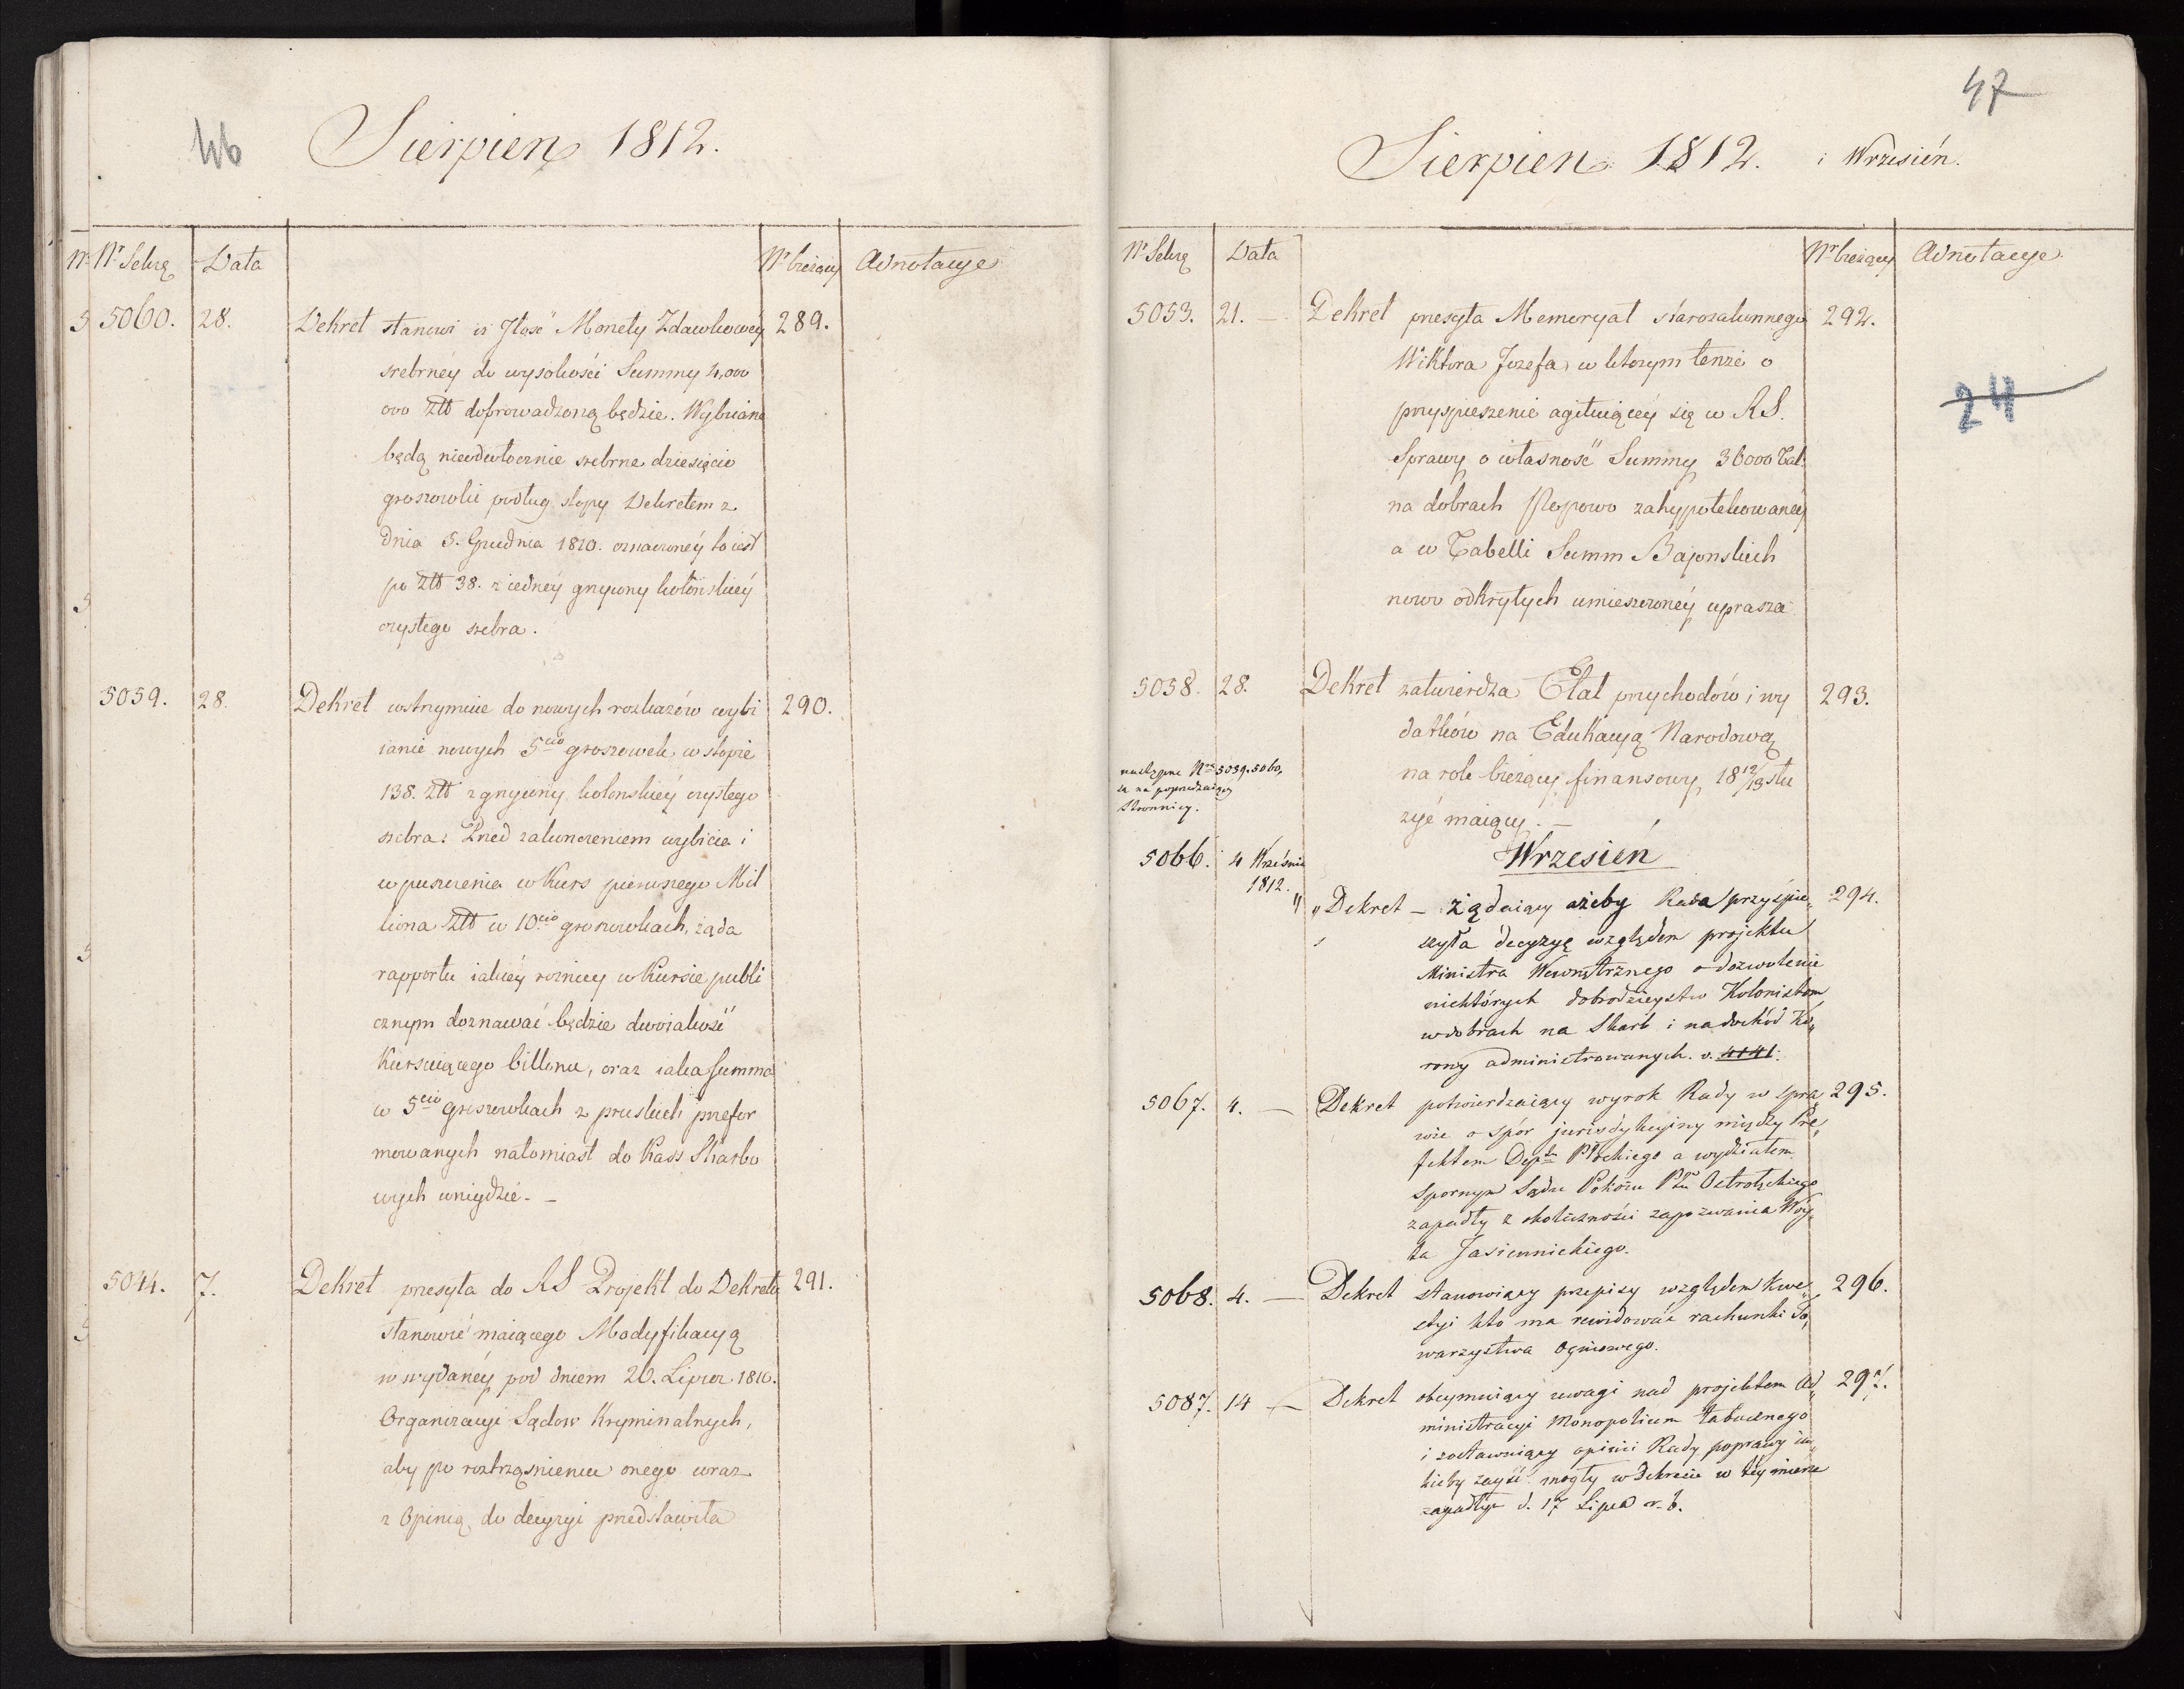 46
Sierpien 1812.
Nr Sekrę
Data
Nr bieżący
Adnotacye
5060.
28.
Dekret stanowi iż Jlość Monety Zdawkowéy
289.
srebrnéy do wysokości Summy 4,000
000 Złł doprowadzoną będzie. Wybiiane
będą nieodwłocznie srebrne dziesięcio
groszowki podług stopy Dekretem z
dnia 5. Grudnia 1810. oznaczonéy to iest
po Złł 38. z iednéy grzywny kolońskiéy
czystego srebra.
5059.
28.
Dekret wstrzymuie do nowych rozkazów wybi
290.
ianie nowych 5cio groszowek w stopie
138. Złł z grzywny kolonskiéy czystego
srebra: Przed zakonczeniem wybicia i
wpuszczenia w Kurs pierwszego Mil
liona Złł w 10cio groszowkach, żąda
rapportu iakiéy rożnicy w Kursie publi
cznym doznawać będzie dwoiakość
Kursuiącego billonu, oraz iaka summa
w 5cio groszowkach z pruskich przefor
mowanych natomiast do Kass Skarbo
wych wnięydzie. –
5044.
7.
Dekret przesyła do RS Projekt do Dekretu
291.
stanowić maiącego Modyfikacyą
w wydanéy pod dniem 20. Lipca 1810.
Organizacyi Sądow Kryminalnych,
aby po roztrząsnieniu onego wraz
z Opinią do decyzyi przedstawiła
47
Sierpien 1812. i Wrzesień.
Nr Sekrę
Data
Nr bieżący
Adnotacye
5053.
21. –
Dekret przesyła Memoryał starozakonnego
292.
Wiktora Jozefa w ktorym tenże o
przyspieszenie agituiącéy się w RS.
Sprawy o własność Summy 36000 Tal:
na dobrach Pępowo zahypotekowanéy
a w Tabelli Summ Bajonskich
nowo odkrytych umieszczonéy uprasza
24
5058.
28.
Dekret zatwierdza Etat przychodów i wy
293.
datków na Edukacyą Narodową
na rok bieżący finansowy 1812/13 słu
żyć maiący. –
następne Nra 5059. 5060,
są na poprzedzaiącéy
Stronnicy.
Wrzesień
5066.
4 Września
1812.
" Dekret – żądaiący ażeby Rada przyśpie„
294.
szyła decyzyę względem projektu
Ministra Wewnętrznego o dozwolenie
niektórych dobrodzieystw Kolonistom
w dobrach na Skarb i na dochód Ko„
rony administrowanych. v. 4141.
5067.
4. –
Dekret potwierdzaiący wyrok Rady w spra„
295.
wie o spór jurisdykcyiny między Pre„
fektem Deptu Płockiego a wydziałem
Spornym Sądu Pokoiu Ptu Ostrołęckiego
zapadły z okoliczności zapozwania Wóy„
ta Jasiennickiego.
5068.
4. –
Dekret stanowiący przepisy względem Kwe„
296.
styi kto ma rewidować rachunki To„
warzystwa Ogniowego.
5087.
14 –
Dekret obeymuiący uwagi nad projektem Ad„
297.
ministracyi Monopolium tabacznego
i zostawuiący opinii Rady poprawy ia„
kieby zayść mogły w Dekrecie w téy mierze
zapadłym d. 17 Lipca r. b.